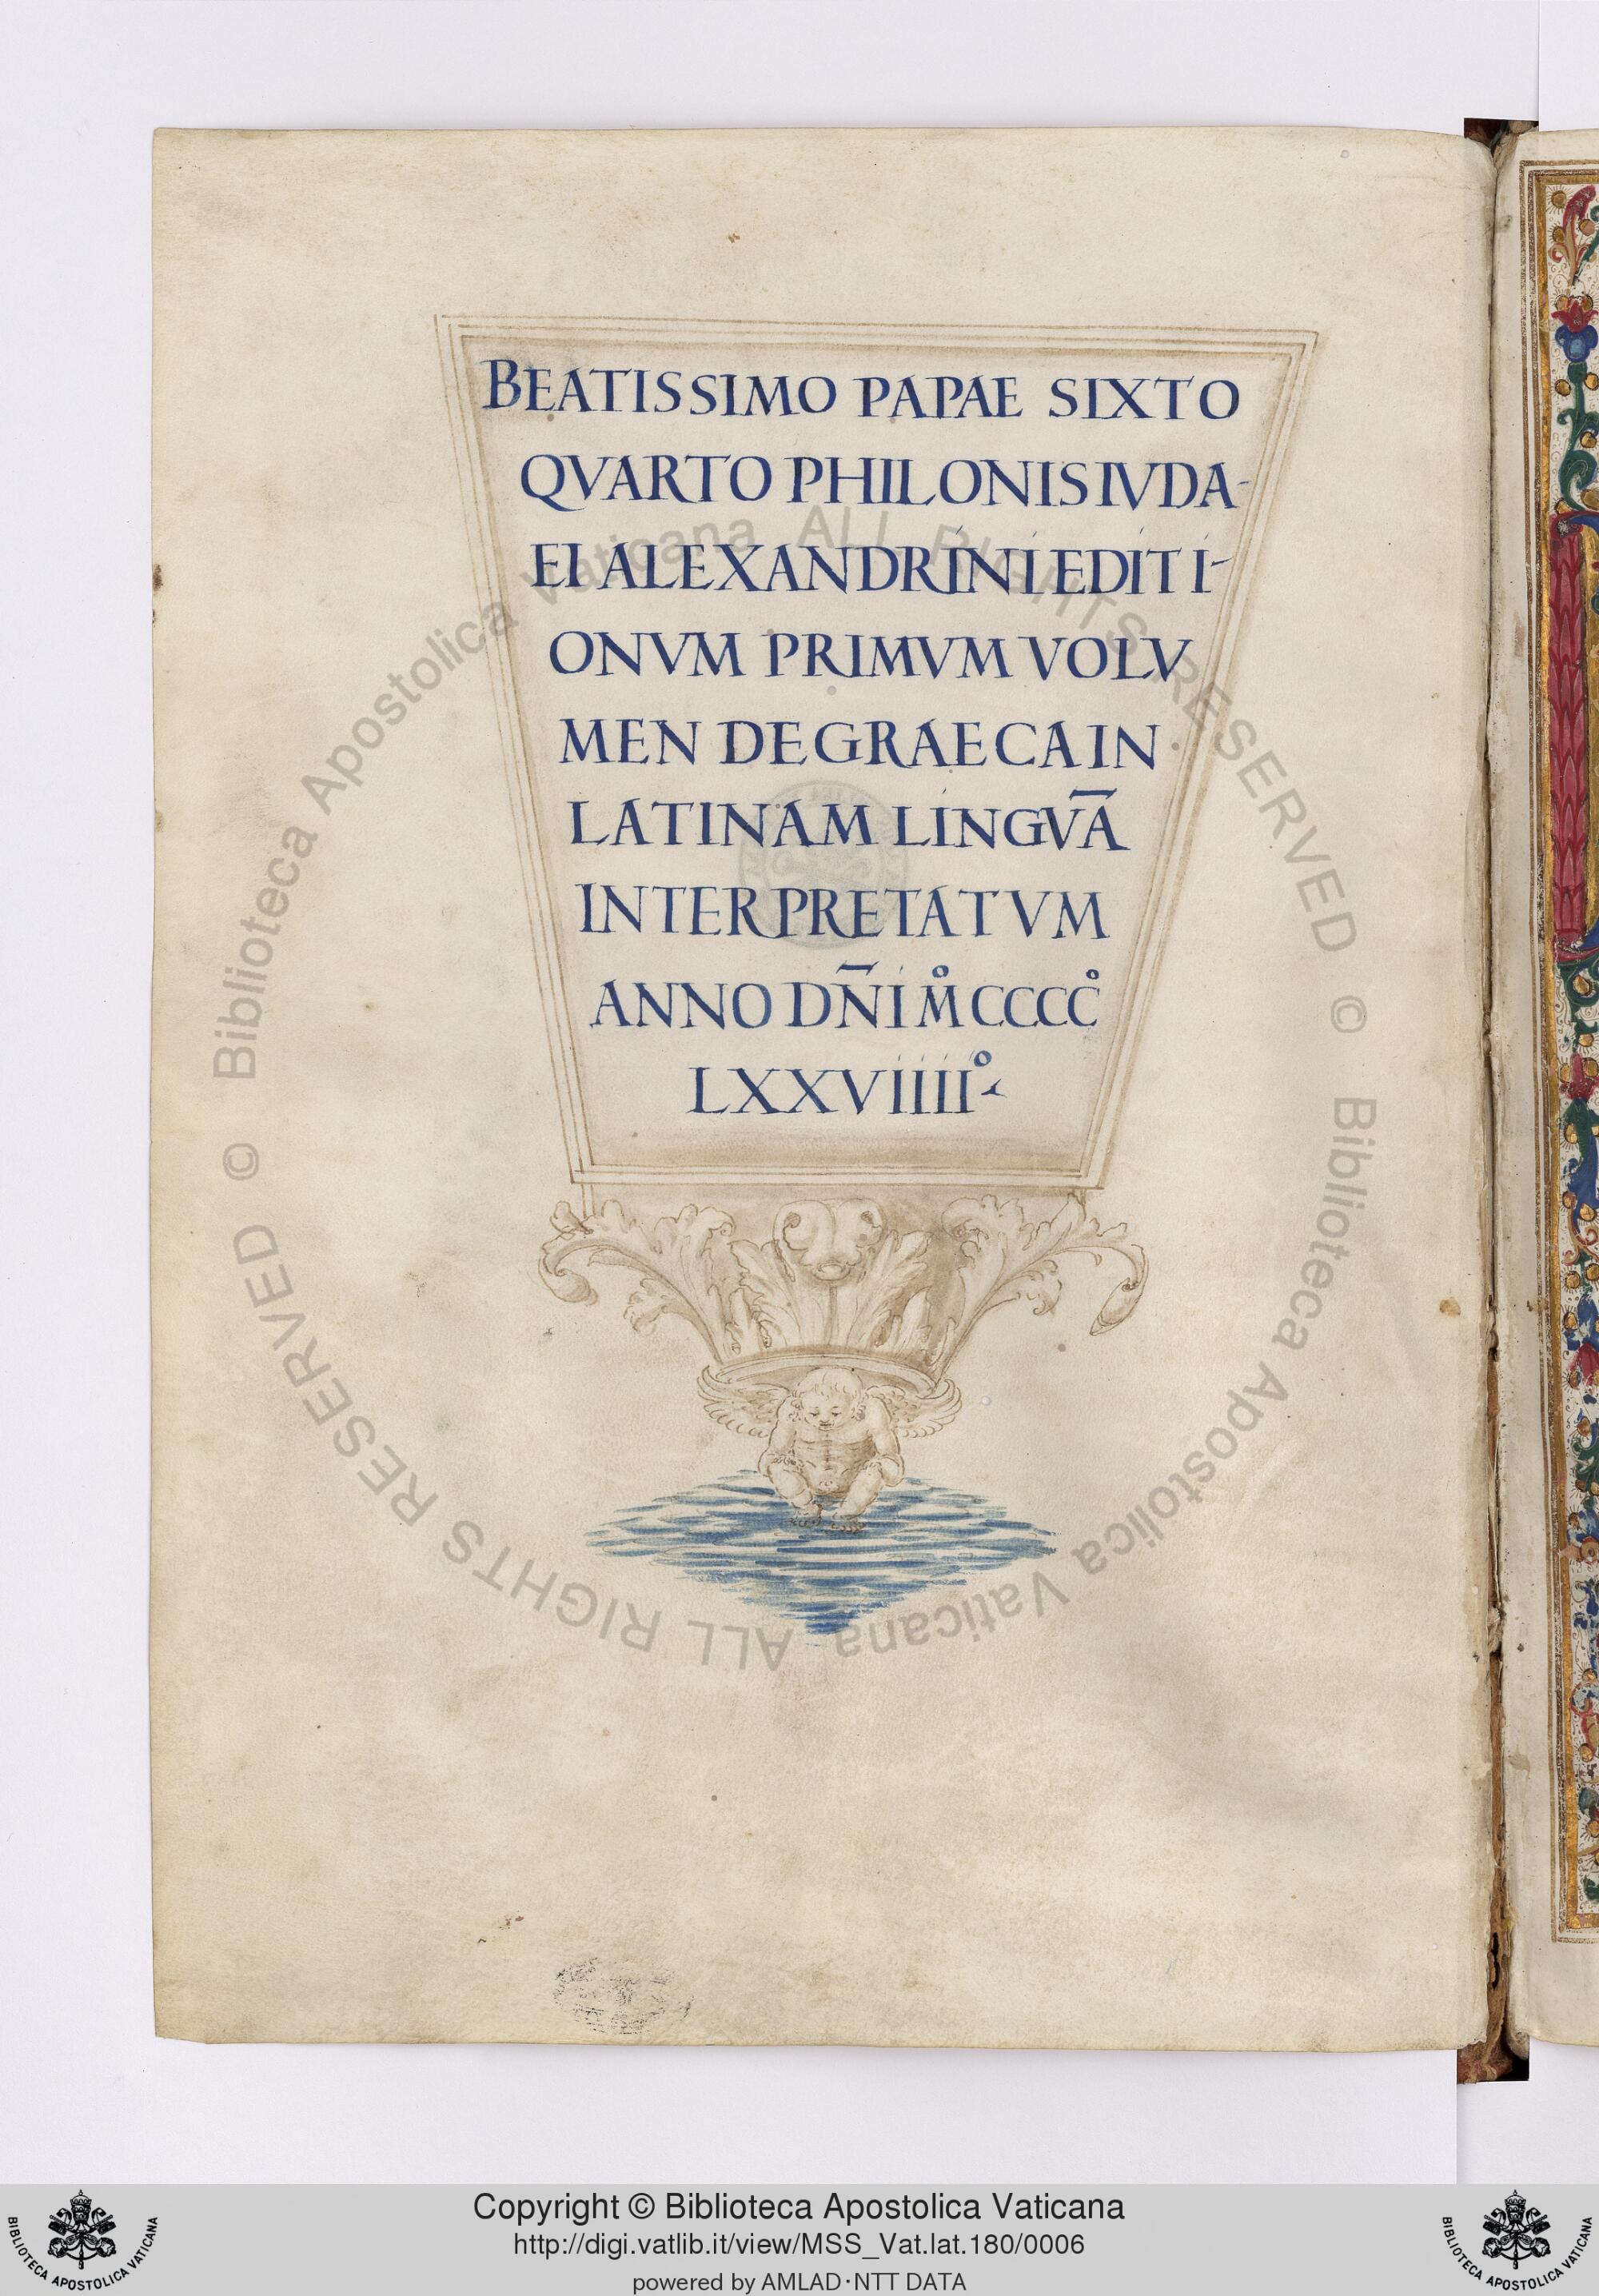 BEATISSIMO PAPAE SIXTO
QVARTO PHILONIS IVDA-
EI ALEXANDRINI EDITI-
ONVM PRIMVM VOLV
MEN DE GRAECA IN
LATINAM LINGVĀ
INTERPRETATVM
ANNO DN̄I M̊ CCCCC̊
LXXVIIII°
Biblioteca Apostolica Vaticana ALL RIGHTS RESERVED ©
Biblioteca Apostolica Vaticana ALL RIGHTS RESERVED ©
Copyright © Biblioteca Apostolica Vaticana
http://digi.vatlib.it/view/MSS_Vat.lat.180/0006
powered by AMLAD·NTT DATA
BIBLIOTECA APOSTOLICA VATICANA
BIBLIOTECA APOSTOLICA VATICANA